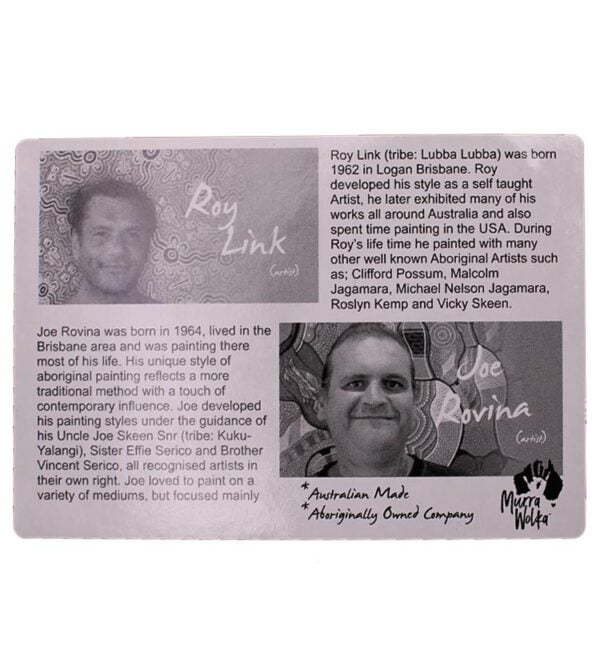 Roy
Link
(artist)
Roy Link (tribe: Lubba Lubba) was born
1962 in Logan Brisbane. Roy
developed his style as a self taught
Artist, he later exhibited many of his
works all around Australia and also
spent time painting in the USA. During
Roy's life time he painted with many
other well known Aboriginal Artists such
as; Clifford Possum, Malcolm
Jagamara, Michael Nelson Jagamara,
Roslyn Kemp and Vicky Skeen.
Joe Rovina was born in 1964, lived in the
Brisbane area and was painting there
most of his life. His unique style of
aboriginal painting reflects a more
traditional method with a touch of
contemporary influence. Joe developed
his painting styles under the guidance of
his Uncle Joe Skeen Snr (tribe: Kuku-
Yalangi), Sister Effie Serico and Brother
Vincent Serico, all recognised artists in
their own right. Joe loved to paint on a
variety of mediums, but focused mainly
Joe
Rovina
(artist)
*Australian Made
*Aboriginally Owned Company
Murra
Wolka